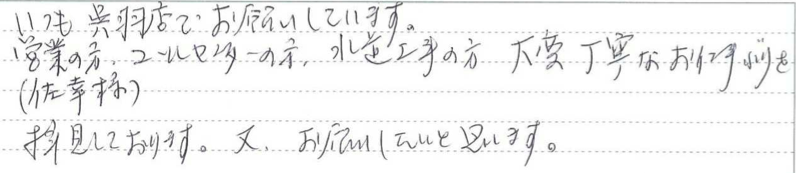 いつも 呉羽店で お願いしています。
営業の方、コールセンターの方、水道工事の方 大変 丁寧な お仕事ぶりを
(佐幸様)
拝見しております。又、お願いしたいと思います。